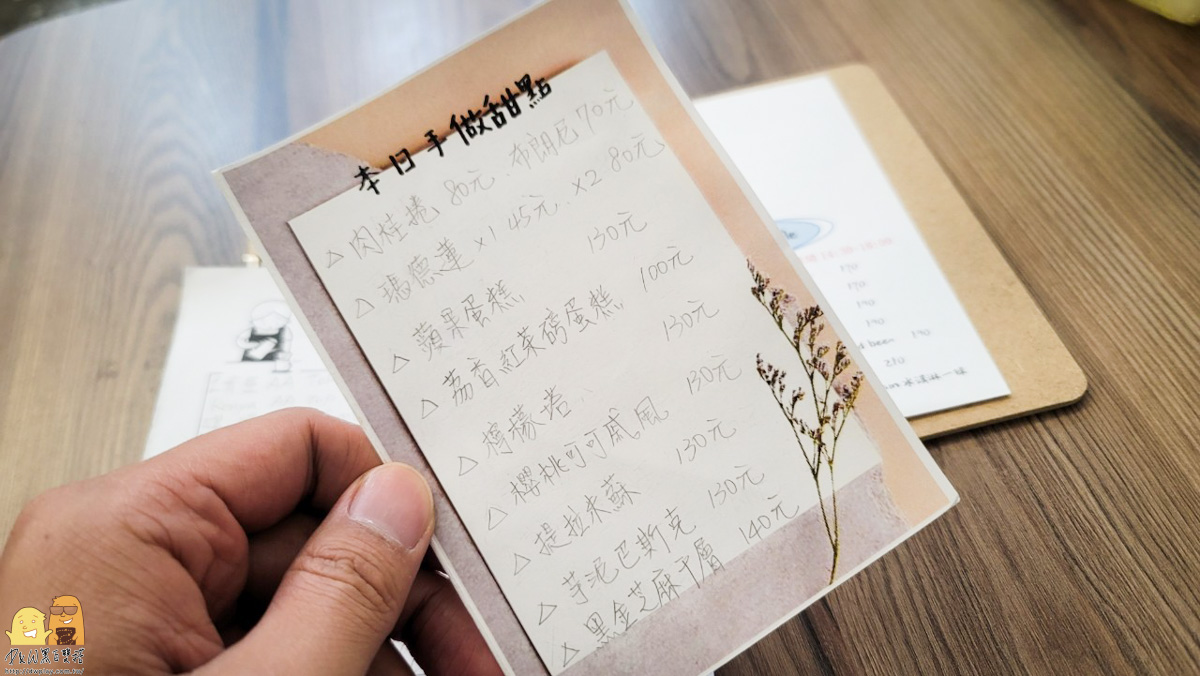 本日手做甜點
△ 肉桂捲 80元、布朗尼 70元
△ 瑪德蓮 x1 45元、x2 80元
△ 蘋果蛋糕 130元
△ 荔香紅茶磅蛋糕 100元
△ 檸檬塔 130元
△ 櫻桃可可戚風 130元
△ 提拉米蘇 130元
△ 芋泥巴斯克 130元
△ 黑金芝麻千層 140元
190
210
http://dwplay.com.tw/